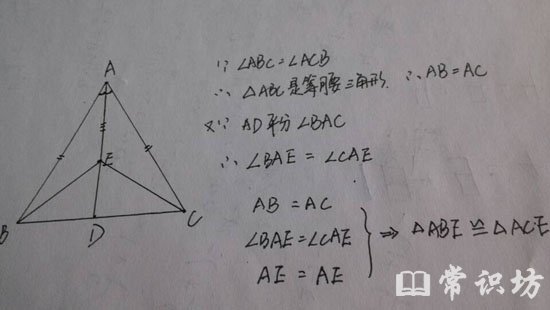 ∵ ∠ABC=∠ACB
∴ △ABC是等腰三角形. ∴ AB=AC
又∵ AD平分∠BAC
∴ ∠BAE = ∠CAE
AB = AC
∠BAE=∠CAE
AE = AE
⇒ △ABE ≌ △ACE
A
E
B
D
C
常识坊